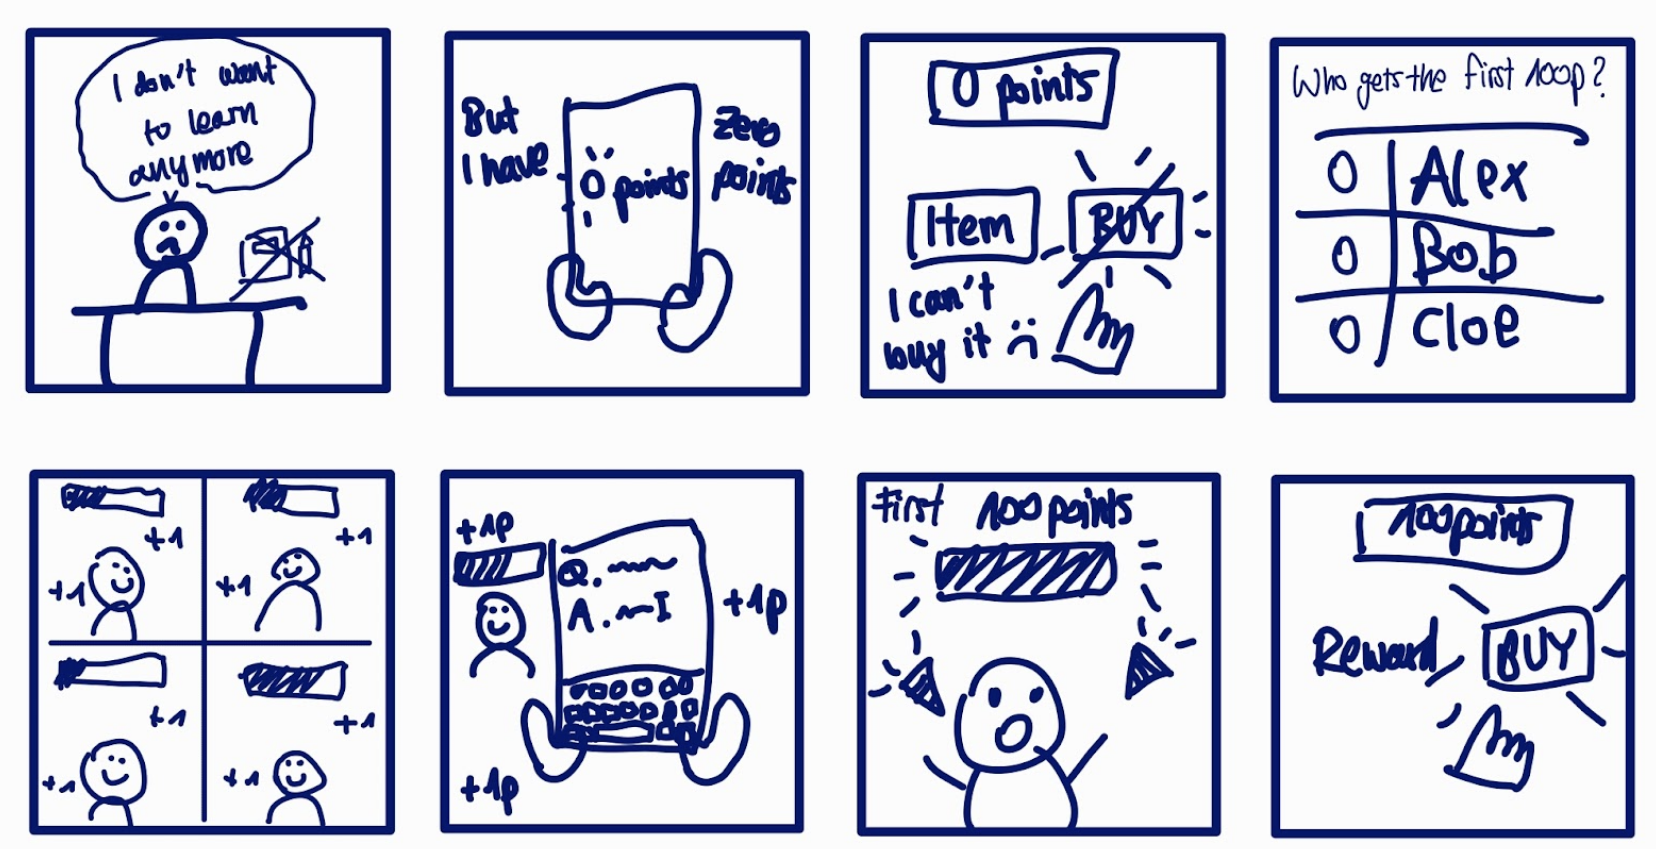 I don't want
to learn
anymore
But
I have
0 points
Zero
points
0 points
Item
BUY
I can't
buy it :(
Who gets the first 100p?
0 Alex
0 Bob
0 Cloe
+1
+1
+1
+1
+1
+1
+1
+1
+1p
Q.
A. I
+1p
+1p
First 100 points
100 points
Reward
BUY